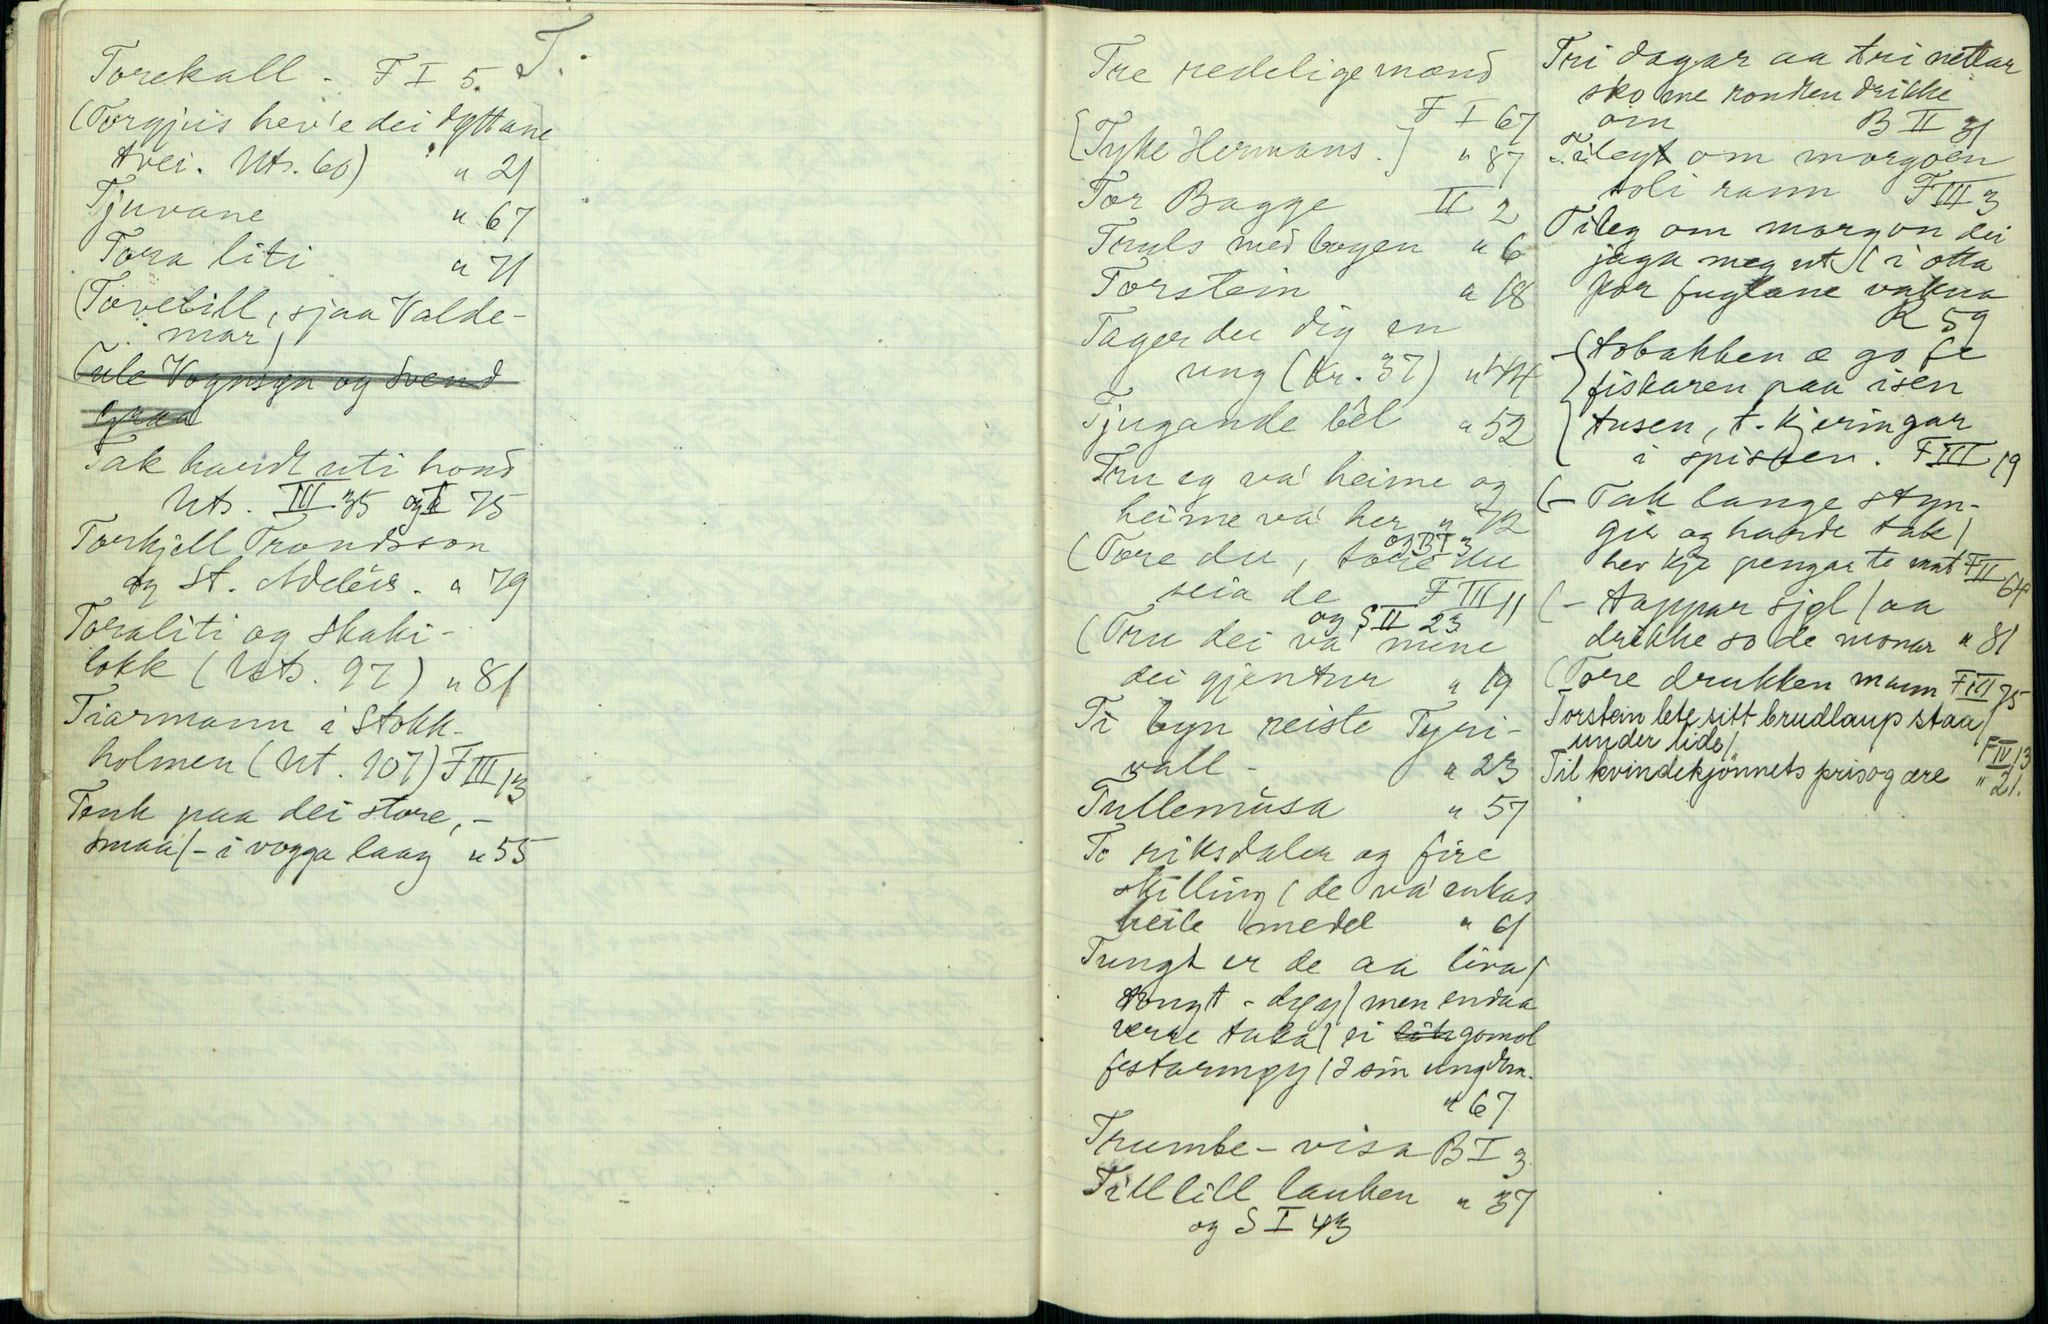 T.
Torekall - F I 5.
(Torgjus hev'e dei dyttane
tvei. Uts. 60) " 21
Tjuvane " 67
Tora liti " 71
(Tovelill, sjaa Valde-
mar)
Tule Vognsyn og Svend
graa
Tak handt uti hond
Uts. III 35 og I 75
Torkjell Trondsson
og St. Adelëis. " 79
Toraliti og Skaki-
lokk (Uts. 97) " 81
Tiarmann i Stokk-
holmen (Ut. 107) F III 13
Tenk paa dei store, -
smaa/- i vogga laag " 55
Tre redelige mænd
F I 67
[Tyke Hermans.] " 87
Tor Bagge II 2
Truls med bogen " 6
Torstein " 18
Tager du dig en
ung (Kr. 37) " 44
Tjugande bël " 52
Tru eg va' heime og
heime va' her " 72
og B I 3
(Tore du, tore du
seia de F III 11
og S II 23
(Tru dei va' mine
dei gjentur " 19
Ti byn reiste Tyri-
vall - " 23
Tullemusa " 57
To riksdaler og fire
skilling / de va' enkas
heile medel " 61
Tungt er de aa liva/
tongt - døy/ men endaa
verre taka/ ei gomol
festarmøy / i sin ungdom.
" 67
Trumbe-visa B I 3
Till lill lauken " 37
og S I 43
Tri dagar aa tri nettar
sko me ronden drikke
om B II 31
Tilegt om morgoen
soli rann F III 3
Tileg om morgon dei
jaga meg ut/ i otta
for fuglane vakna
R 59
- {tobakken æ go fe
fiskaren paa isen
{tusen, t. kjeringar
i spisen. F III 19
(- Tak lange styn-
gir og harde tak/
hev kje pengar te mat F II 64
(- tappar sjøl / aa
drikke so de monar " 81
(Tore drukken mann F III 75
Torstein lete sitt brudlaup staa/
under lide/. F IV 13
Til kvindekjönnets pris og ære " 21.